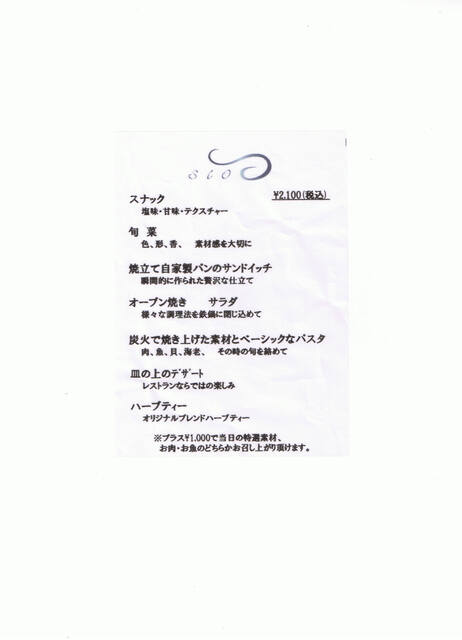 sio
¥2,100(税込)
スナック
塩味・甘味・テクスチャー
旬 菜
色、形、香、 素材感を大切に
焼立て自家製パンのサンドイッチ
瞬間的に作られた贅沢な仕立て
オーブン焼き サラダ
様々な調理法を鉄鍋に閉じ込めて
炭火で焼き上げた素材とベーシックなパスタ
肉、魚、貝、海老、 その時の旬を絡めて
皿の上のデザート
レストランならではの楽しみ
ハーブティー
オリジナルブレンドハーブティー
※プラス¥1,000で当日の特選素材、
お肉・お魚のどちらかお召し上がり頂けます。